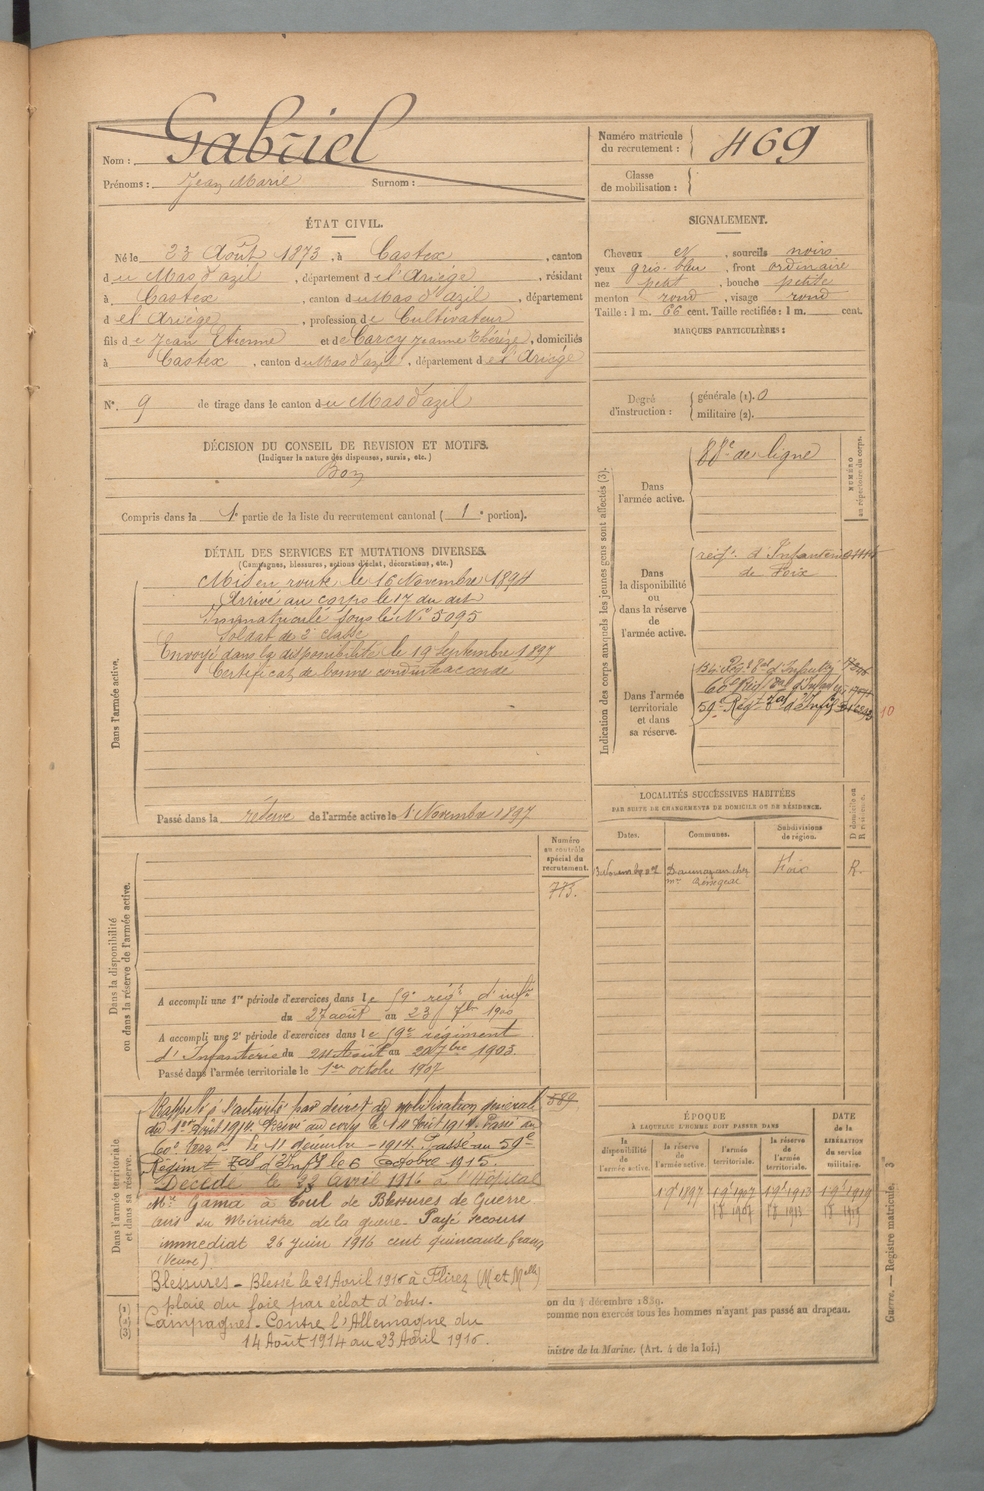 Nom : Gabriel
Prénoms : Jean Marie Surnom :
Numéro matricule du recrutement : 469
Classe de mobilisation :
ÉTAT CIVIL.
Né le 23 Août 1873, à Castex, canton
du Mas d'azil, département de l'Ariège, résidant
à Castex, canton du Mas d'azil, département
de l'Ariège, profession de Cultivateur
fils de Jean Etienne et de Carcy Jeanne Thérèze, domiciliés
à Castex, canton du Mas d'azil, département de l'Ariège
N°. 9 de tirage dans le canton du Mas d'azil
SIGNALEMENT.
Cheveux et, sourcils noirs
yeux gris-bleu, front ordinaire
nez petit, bouche petite
menton rond, visage rond
Taille : 1 m. 66 cent. Taille rectifiée : 1 m. cent.
MARQUES PARTICULIÈRES :
Degré d'instruction :
générale (1). 0
militaire (2).
DÉCISION DU CONSEIL DE REVISION ET MOTIFS.
(Indiquer la nature des dispenses, sursis, etc.)
Bon
Compris dans la 1e partie de la liste du recrutement cantonal ( 1e portion).
DÉTAIL DES SERVICES ET MUTATIONS DIVERSES.
(Campagnes, blessures, actions d'éclat, décorations, etc.)
Dans l'armée active.
Mis en route le 16 Novembre 1894
Arrivé au corps le 17 du dit
Immatriculé sous le N° 5095
Soldat de 2e classe
Envoyé dans la disponibilité le 19 Septembre 1897
Certificat de bonne conduite accordé
Passé dans la réserve de l'armée active le 1 Novembre 1897
Indication des corps auxquels les jeunes gens sont affectés (3).
NUMÉRO au répertoire du corps.
Dans l'armée active.
88e de ligne
Dans la disponibilité ou dans la réserve de l'armée active.
régt. d'Infanterie
de Foix
Dans l'armée territoriale et dans sa réserve.
134 Régt
59e Régt
10
LOCALITÉS SUCCESSIVES HABITÉES
PAR SUITE DE CHANGEMENTS DE DOMICILE OU DE RÉSIDENCE.
Dates.
Communes.
Subdivisions de région.
D domicile ou R résidence.
Daumazan chez
Mr
Foix
R.
Numéro au contrôle spécial du recrutement.
775.
Dans la disponibilité ou dans la réserve de l'armée active.
A accompli une 1re période d'exercices dans le 59e régt d'infie
du 27 août au 23 7bre 1900
A accompli une 2e période d'exercices dans le 59e régiment
d'Infanterie du 24 Août au 20 7bre 1903
Passé dans l'armée territoriale le 1er octobre 1907
Dans l'armée territoriale et dans sa réserve.
589
Rappelé à l'activité par décret de mobilisation générale
du 1er Août 1914. Arrivé au corps le 14 Août 1914. Passé au
60e le 11 décembre - 1914. Passé au 59e
Régimt d'Infie le 6 octobre 1915.
Décédé le 23 avril 1916 à l'Hôpital
Mr Gama à Toul de Blessures de Guerre
avis du Ministre de la guerre. Payé secours
immédiat 26 juin 1916 cent quinquante francs
(Veuve).
Blessures - Blessé le 21 Avril 1916 à Flirey (M et Mlle)
plaie du foie par éclat d'obus.
Campagnes - Contre l'Allemagne du
14 Août 1914 au 23 Avril 1916.
ÉPOQUE
À LAQUELLE L'HOMME DOIT PASSER DANS
la disponibilité de l'armée active.
la réserve de l'armée active.
l'armée territoriale.
la réserve de l'armée territoriale.
DATE de la LIBÉRATION du service militaire.
1 9b 1897
on du 4 décembre 1889.
comme non exercés tous les hommes n'ayant pas passé au drapeau.
inistre de la Marine. (Art. 4 de la loi.)
Guerre. — Registre matricule.